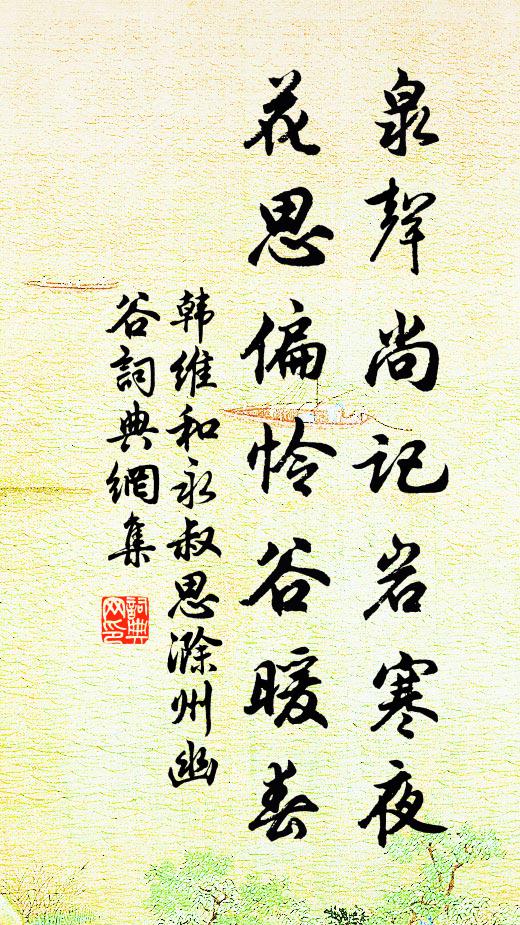 泉聲尚记岩寒夜
花思偏怜谷暖春
韩维和永叔思滁州幽
谷詞典網集
詞典
网印